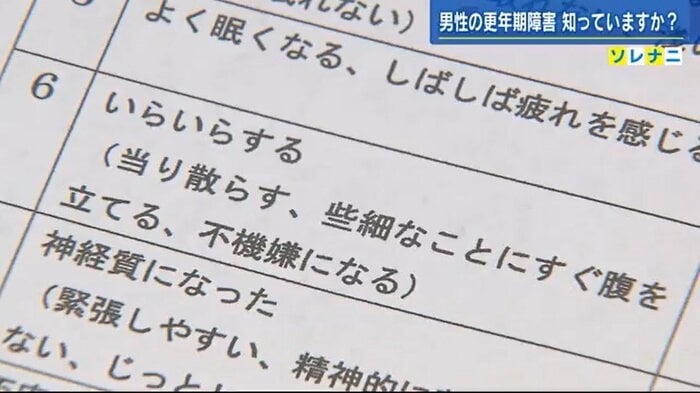 男性の更年期障害 知っていますか？
ソレナニ
よく眠くなる、しばしば疲れを感じる
6
いらいらする
（当り散らす、些細なことにすぐ腹を
立てる、不機嫌になる）
神経質になった
（緊張しやすい、精神的に
ない、じっと